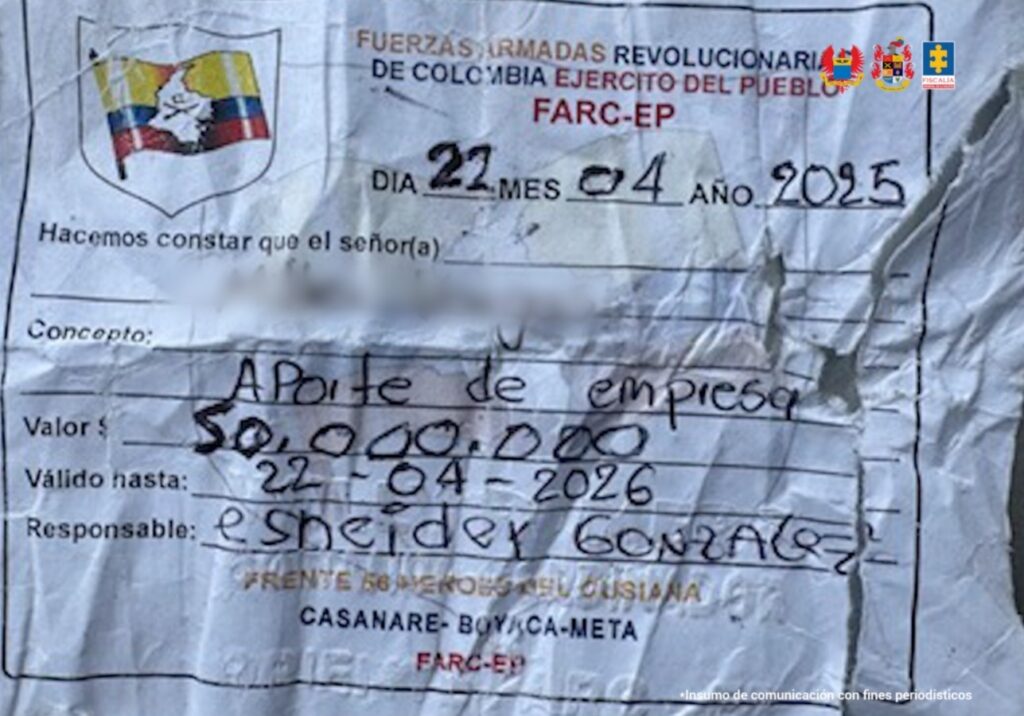 FUERZAS ARMADAS REVOLUCIONARIAS
DE COLOMBIA EJERCITO DEL PUEBLO
FARC-EP
FISCALÍA
DIA 22 MES 04 AÑO 2025
Hacemos constar que el señor(a)
Concepto:
APorte de empresa
Valor $ 50.000.000
Válido hasta: 22-04-2026
Responsable: esneider GONZALez
FRENTE 56 HEROES DEL CUSIANA
CASANARE- BOYACA-META
FARC-EP
*Insumo de comunicación con fines periodísticos